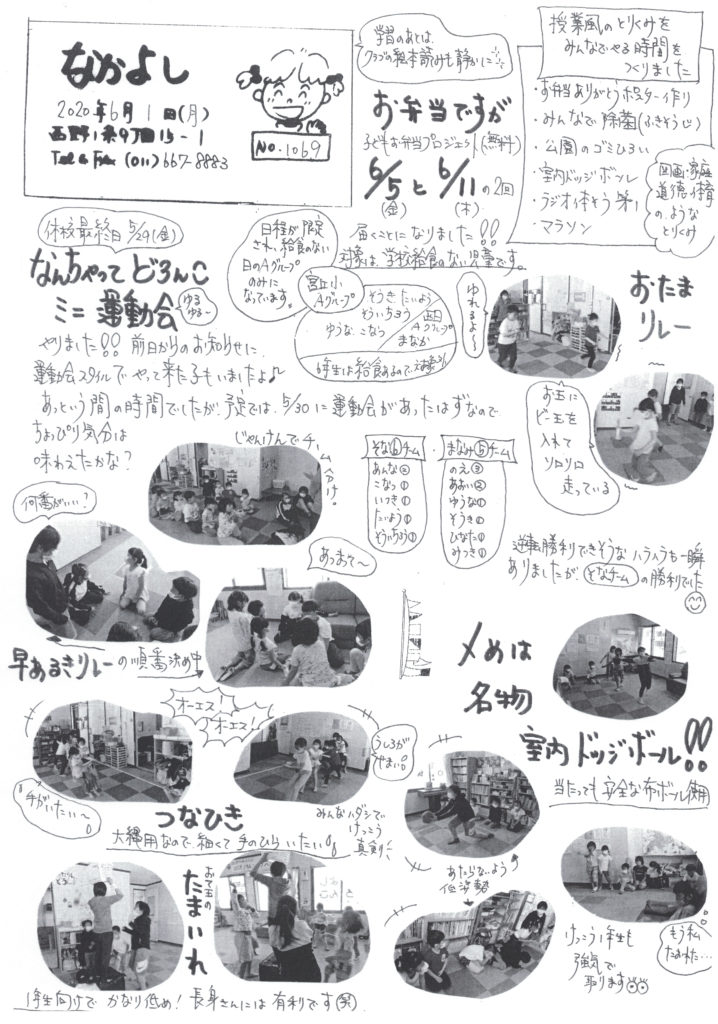 なかよし
2020年6月1日(月)
西野1条9丁目15-1
Tel & Fax (011)667-8883
NO.1069
学習のあとは、
クラブの絵本読みも静かに
お弁当ですが
子どもお弁当プロジェクト(無料)
6/5と6/11の2回
(金) (木)
届くことになりました!!
対象は、学校給食のない児童です。
授業風のとりくみを
みんなでやる時間を
つくりました
・お弁当ありがとうポスター作り
・みんなで除菌(ふきそうじ)
・公園のゴミひろい
・室内ドッジボール
・ラジオ体そう第1
・マラソン
図画・家庭
道徳・体育
のような
とりくみ
休校最終日 5/29(金)
なんちゃってどろんこ
ミニ運動会
ゆるゆる〜
日程が限定
され、給食のない
日のAグループ
のみに
なっています。
宮丘小
Aグループ
そうき たいよう
そういちろう
ゆうな こなつ
Aグループ
まなか
6年生は給食あるので、対象外
やりました!! 前日からのお知らせに、
運動会スタイルでやって来た子もいましたよ♪
あっという間の時間でしたが、予定では、5/30に運動会があったはずなので
ちょっぴり気分は
味わえたかな?
ゆれるよ〜
おたま
リレー
お玉に
ビー玉を
入れて
ソロソロ
走っている
じゃんけんでチーム分け。
そな⑥チーム
あんな②
こなつ①
いつき①
たいよう①
そういちろう①
まなみ⑤チーム
のえ③
あおい②
ゆうな①
そうき①
ひなた①
みつき①
逆転勝利できそうなハラハラも一瞬
ありましたが そなチーム の勝利でした
何番がいい?
あっおそ〜
早あるきリレーの順番決め中
オーエス!
オーエス!
手がいたい〜
うしろが
せまい
つなひき
大縄用なので、細くて手のひらいたい
みんなハダシで
けっこう
真剣
〆めは
名物
室内ドッジボール!!
当たっても安全な布ボール使用
あたらないよう
低姿勢
お手玉の
たまいれ
1年生向けでかなり低め!長身さんには有利です(笑)
けっこう1年生も
強気で
取ります
もう私
だめだ…